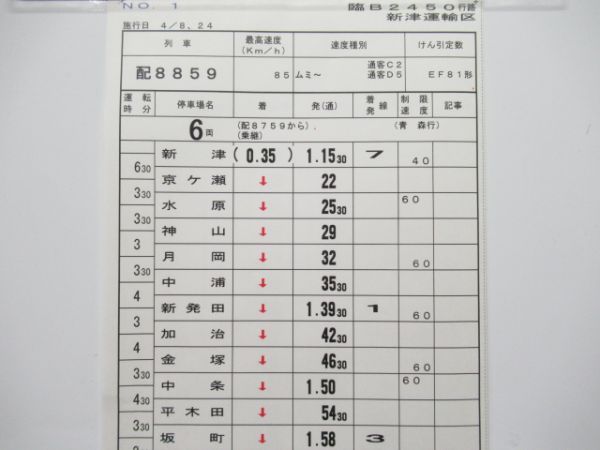 NO. 1 臨B2450行路
新津運輸区
施行日 4/8、24
列車 最高速度(Km/h) 速度種別 けん引定数
配8859 85 ムミ～ 通客C2 通客D5 EF81形
運転時分 停車場名 着 発(通) 着発線 制限速度 記事
6両 (配8759から)(乗継) (青森行)
新津 (0.35) 1.15 30 7 40
6 30
京ケ瀬 ↓ 22
3 30
水原 ↓ 25 30 60
3 30
神山 ↓ 29
3
月岡 ↓ 32 60
3 30
中浦 ↓ 35 30
4
新発田 ↓ 1.39 30 1 60
3
加治 ↓ 42 30
4
金塚 ↓ 46 30 60
3 30
中条 ↓ 1.50 60
4 30
平木田 ↓ 54 30
3 30
坂町 ↓ 1.58 3